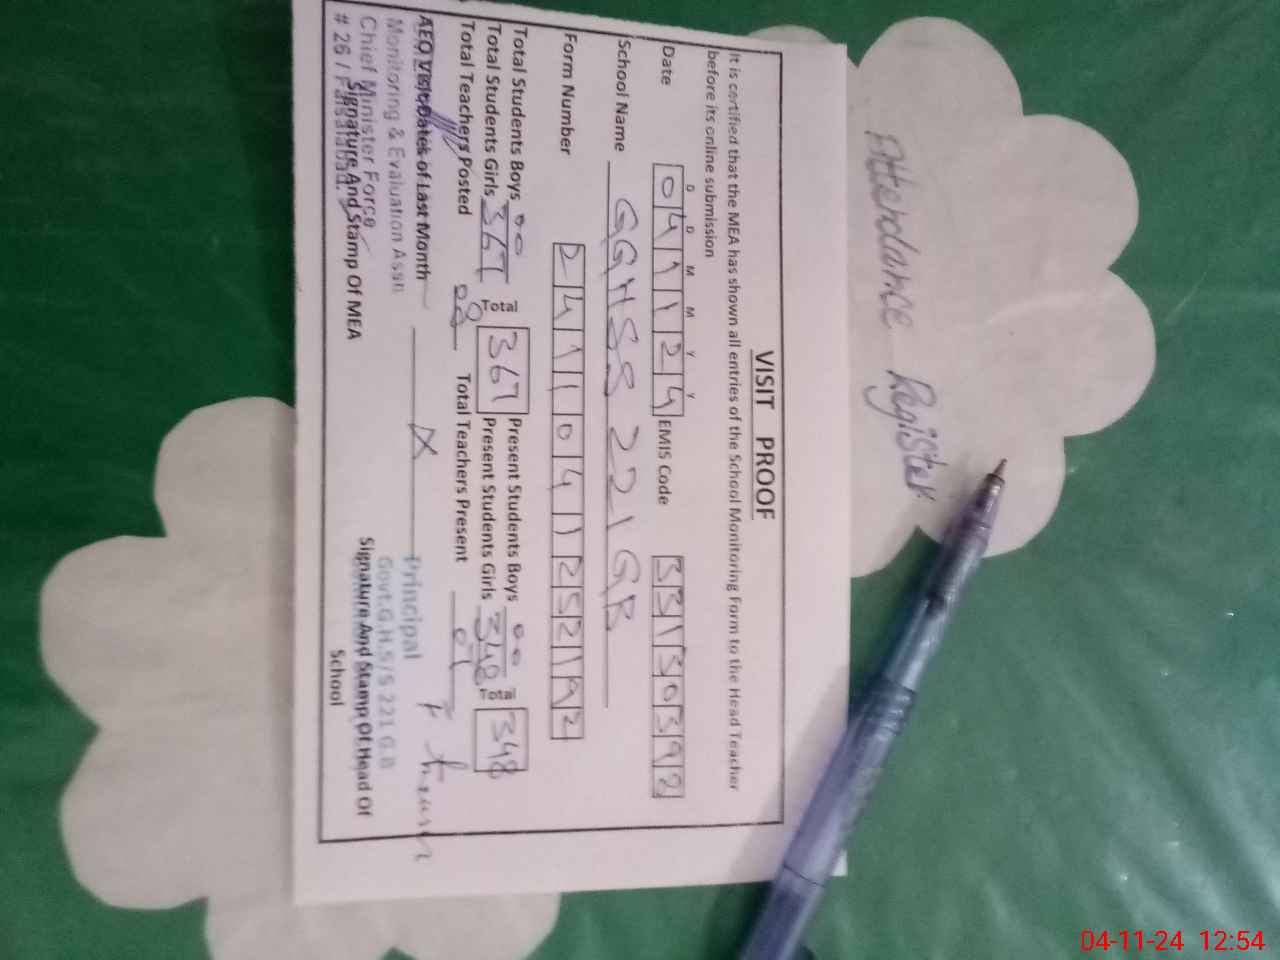 Attendance Register
VISIT PROOF
It is certified that the MEA has shown all entries of the School Monitoring Form to the Head Teacher
before its online submission
D D M M Y Y
Date 041124 EMIS Code 33130392
School Name GGHSS 221 GB
Form Number 24110411252192
Total Students Boys 00 Present Students Boys 00
Total Students Girls 367 Total 367 Present Students Girls 348 Total 348
Total Teachers Posted Total Teachers Present
AEO Visit Dates of Last Month X
Monitoring & Evaluation Asstt
Chief Minister Force
# 26 / Faisalabad.
Signature And Stamp Of MEA
Principal
Govt.G.H.S/S 221 G.B
Signature And Stamp Of Head Of
School
04-11-24 12:54